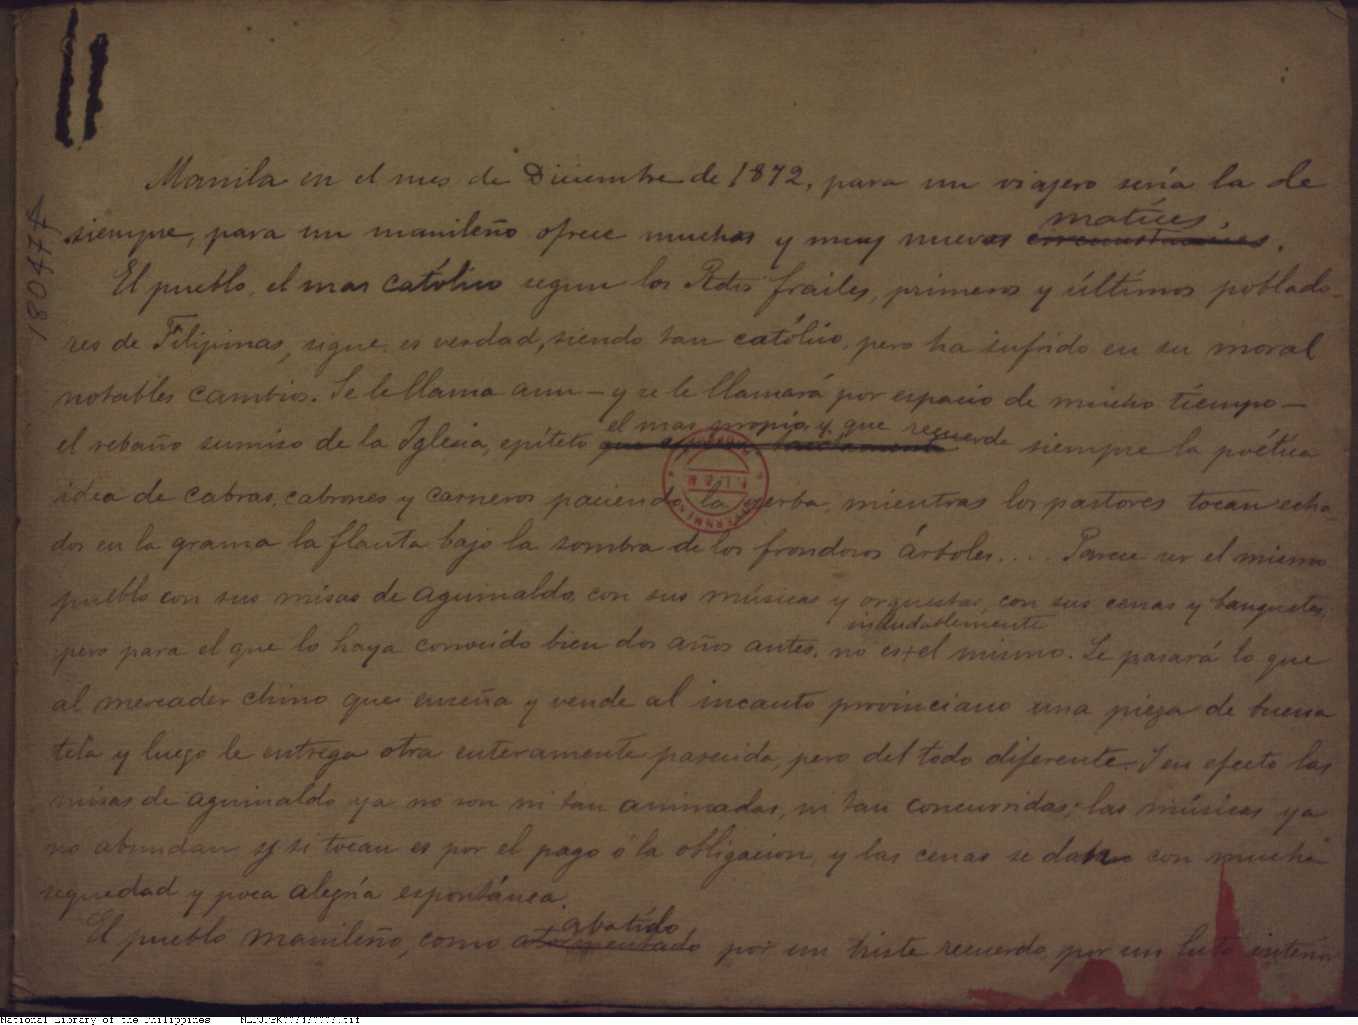 Manila en el mes de Diciembre de 1872, para un viajero seria la de
matices.
siempre, para un manileño ofrece muchos y muy nuevos circunstancias.
El pueblo, el mas católico segun los Pdrs frailes, primeros y últimos poblado-
res de Filipinas, sigue, es verdad, siendo tan católico, pero ha sufrido en su moral
notables cambios. Se le llama aun — y se le llamará por espacio de mucho tiempo —
el mas propio y que recuerde
el rebaño sumiso de la Iglesia, epíteto siempre la poética
idea de cabras, cabrones y carneros paciendo la yerba, mientras los pastores tocan echa-
dos en la grama la flauta bajo la sombra de los frondosos árboles... Parece ser el mismo
pueblo con sus misas de aguinaldo, con sus músicas y orquestas, con sus cenas y banquetes,
indudablemente
pero para el que lo haya conocido bien dos años antes, no es + el mismo. Le pasará lo que
al mercader chino que enseña y vende al incauto provinciano una pieza de buena
tela y luego le entrega otra enteramente parecida, pero del todo diferente. Y en efecto las
misas de aguinaldo ya no son ni tan animadas, ni tan concurridas; las músicas ya
no abundan y si tocan es por el pago ó la obligacion, y las cenas se dan con mucha
sequedad y poca alegría espontánea.
abatido
El pueblo manileño, como atormentado por un triste recuerdo, por un luto interior
180477
National Library of the Philippines